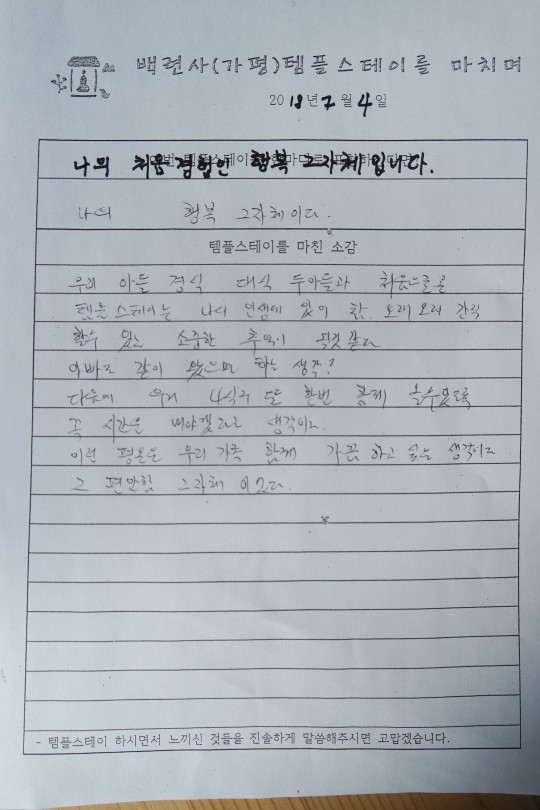 백련사(가평)템플스테이를 마치며
2018년 7월 4일
나의 처음경험인 행복 그자체입니다.
나의 행복 그자체이다.
템플스테이를 마친 소감
우리 아들 대식 두아들과 처음으로
템플스테이는 나의 인생에 있어 참 오래오래 간직
할수 있는 소중한 추억이 될것 같다
아빠도 같이 왔으면 하는 생각?
다음에 4식구 또 한번 함께 올수있도록
꼭 시간을 내야겠다고 생각이다
이런 평온을 우리가족 함께 가끔 하고 싶은 생각이다
그 편안함 그자체 이였다.
- 템플스테이 하시면서 느끼신 것들을 진솔하게 말씀해주시면 고맙겠습니다.